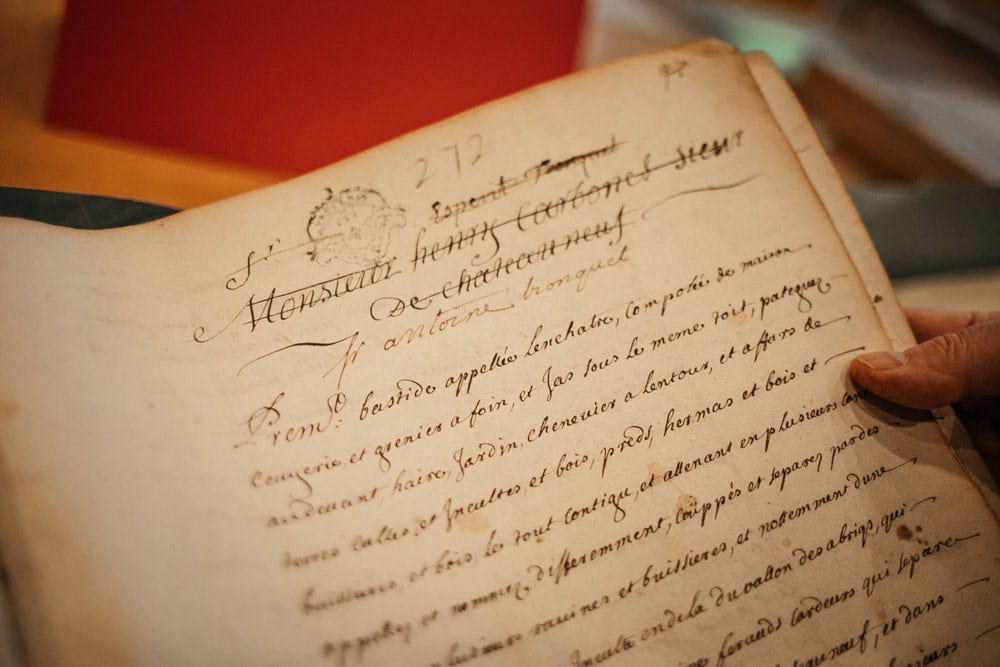 272
Sr Esperit Tronquet
Monsieur henry Carbonel Sieur
De chateauneuf
Sr antoine tronquet
Prem.t bastide appellée Lenchatre, Composée de maison
et grenier a foin, et Jas sous le meme toit, pateguez
audevant, haire, Jardin, chenevier a lentour, et affars de
terres Cultes, et Incultes, et bois, preds, hermas et bois et
buissieres, et bois, le tout Contigu, et attenant en plusieurs
appellez et nommez differemment, Couppés et separez par des
plusieurs ravines et buissieres, et nottemment dune
Inculte endela du vallon des abrigs, qui
ferauds Cardeurs qui separe
et dans